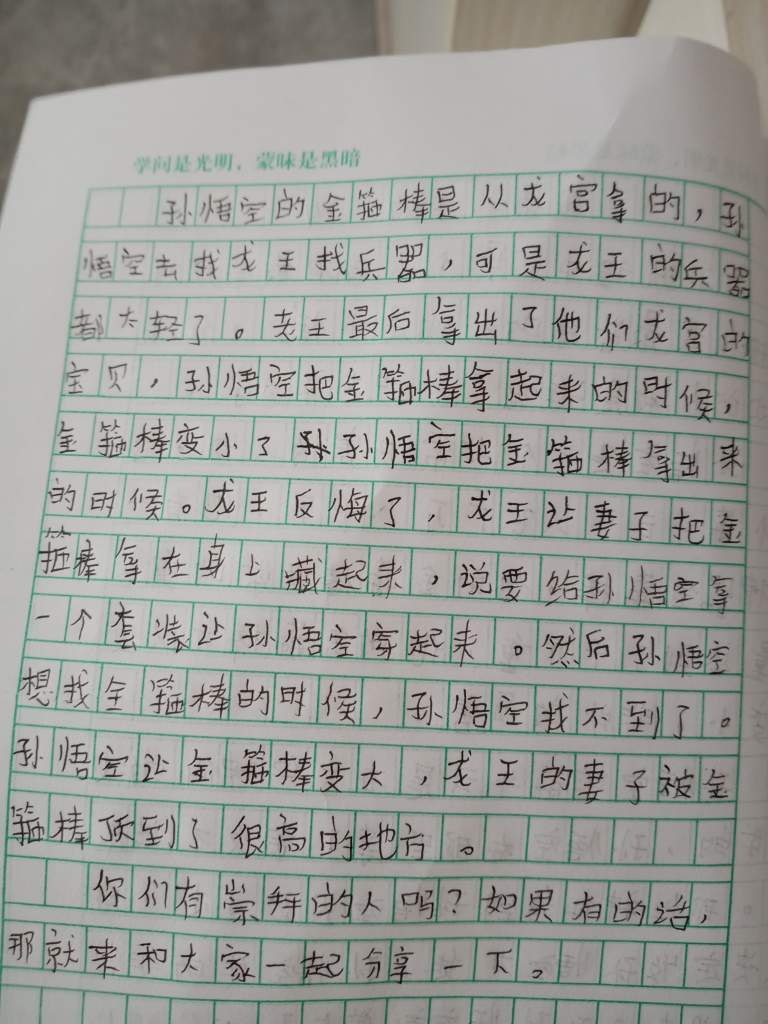 学问是光明，蒙昧是黑暗
孙悟空的金箍棒是从龙宫拿的，孙
悟空去找龙王找兵器，可是龙王的兵器
都太轻了。老王最后拿出了他们龙宫的
宝贝，孙悟空把金箍棒拿起来的时候，
金箍棒变小了孙悟空把金箍棒拿出来
的时候。龙王反悔了，龙王让妻子把金
箍棒拿在身上藏起来，说要给孙悟空拿
一个套装让孙悟空穿起来。然后孙悟空
想找金箍棒的时候，孙悟空找不到了。
孙悟空让金箍棒变大，龙王的妻子被金
箍棒顶到了很高的地方。
你们有崇拜的人吗？如果有的话，
那就来和大家一起分享一下。